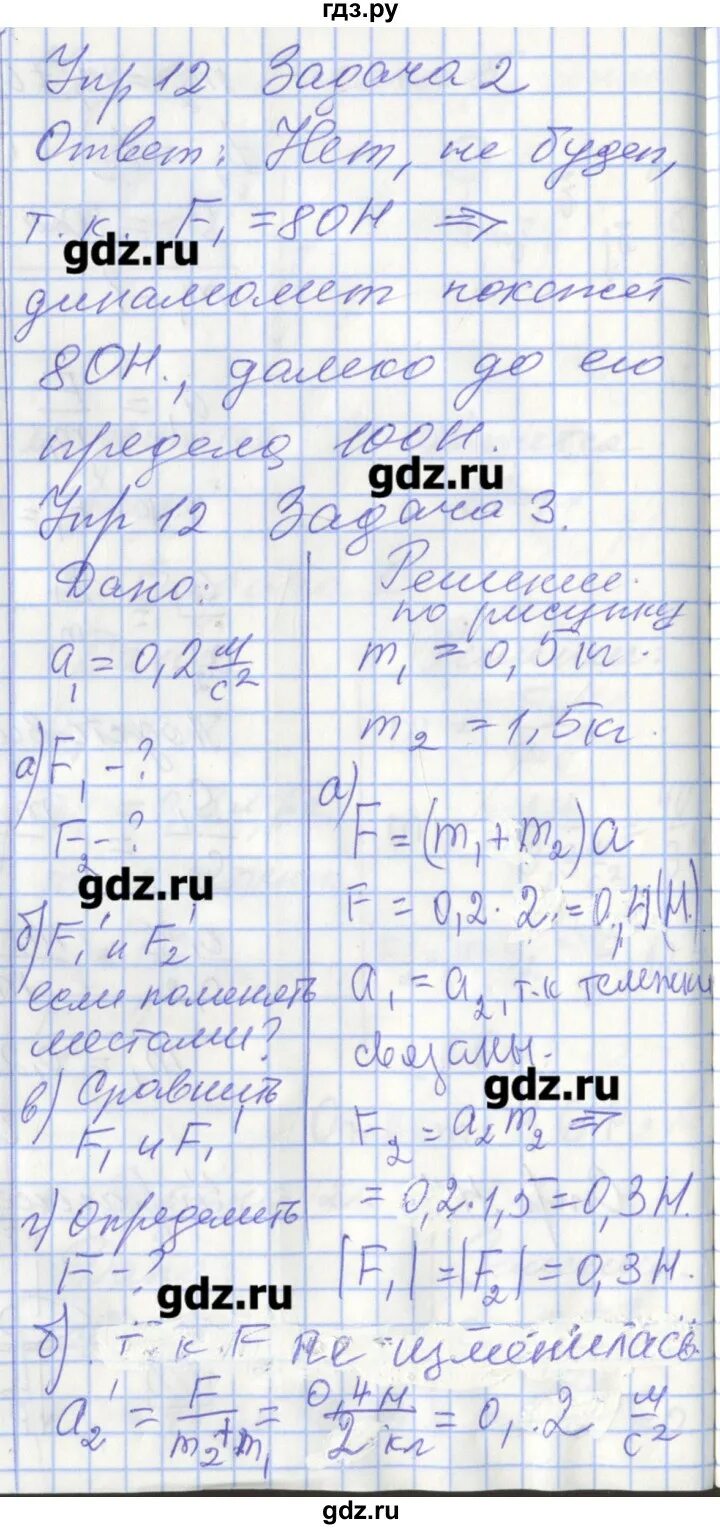 гдз.ру
Упр 12 Задача 2
Ответ: Нет, не будет,
т.к. F₁ = 80Н ⇒
gdz.ru
динамомет покажет
80Н., далеко до его
предела 100Н.
gdz.ru
Упр 12 Задача 3.
Дано:
a₁ = 0,2 м/с²
а) F₁ - ?
F₂ - ?
gdz.ru
б) F₁' и F₂'
если поменять
местами?
в) Сравнить
F₁ и F₁'
г) Определить
F - ?
gdz.ru
Решение.
по рисунку
m₁ = 0,5 кг.
m₂ = 1,5 кг.
а)
F = (m₁ + m₂)a
F = 0,2 · 2 = 0,4 (Н.)
a₁ = a₂, т.к тележки
связаны.
gdz.ru
F₂ = a₂m₂ ⇒
= 0,2 · 1,5 = 0,3 Н.
|F₁| = |F₂| = 0,3 Н.
б). т.к. F не изменилась
a₂' = F/(m₂ + m₁) = 0,4 н/2 кг = 0,2 м/с²
gdz.ru